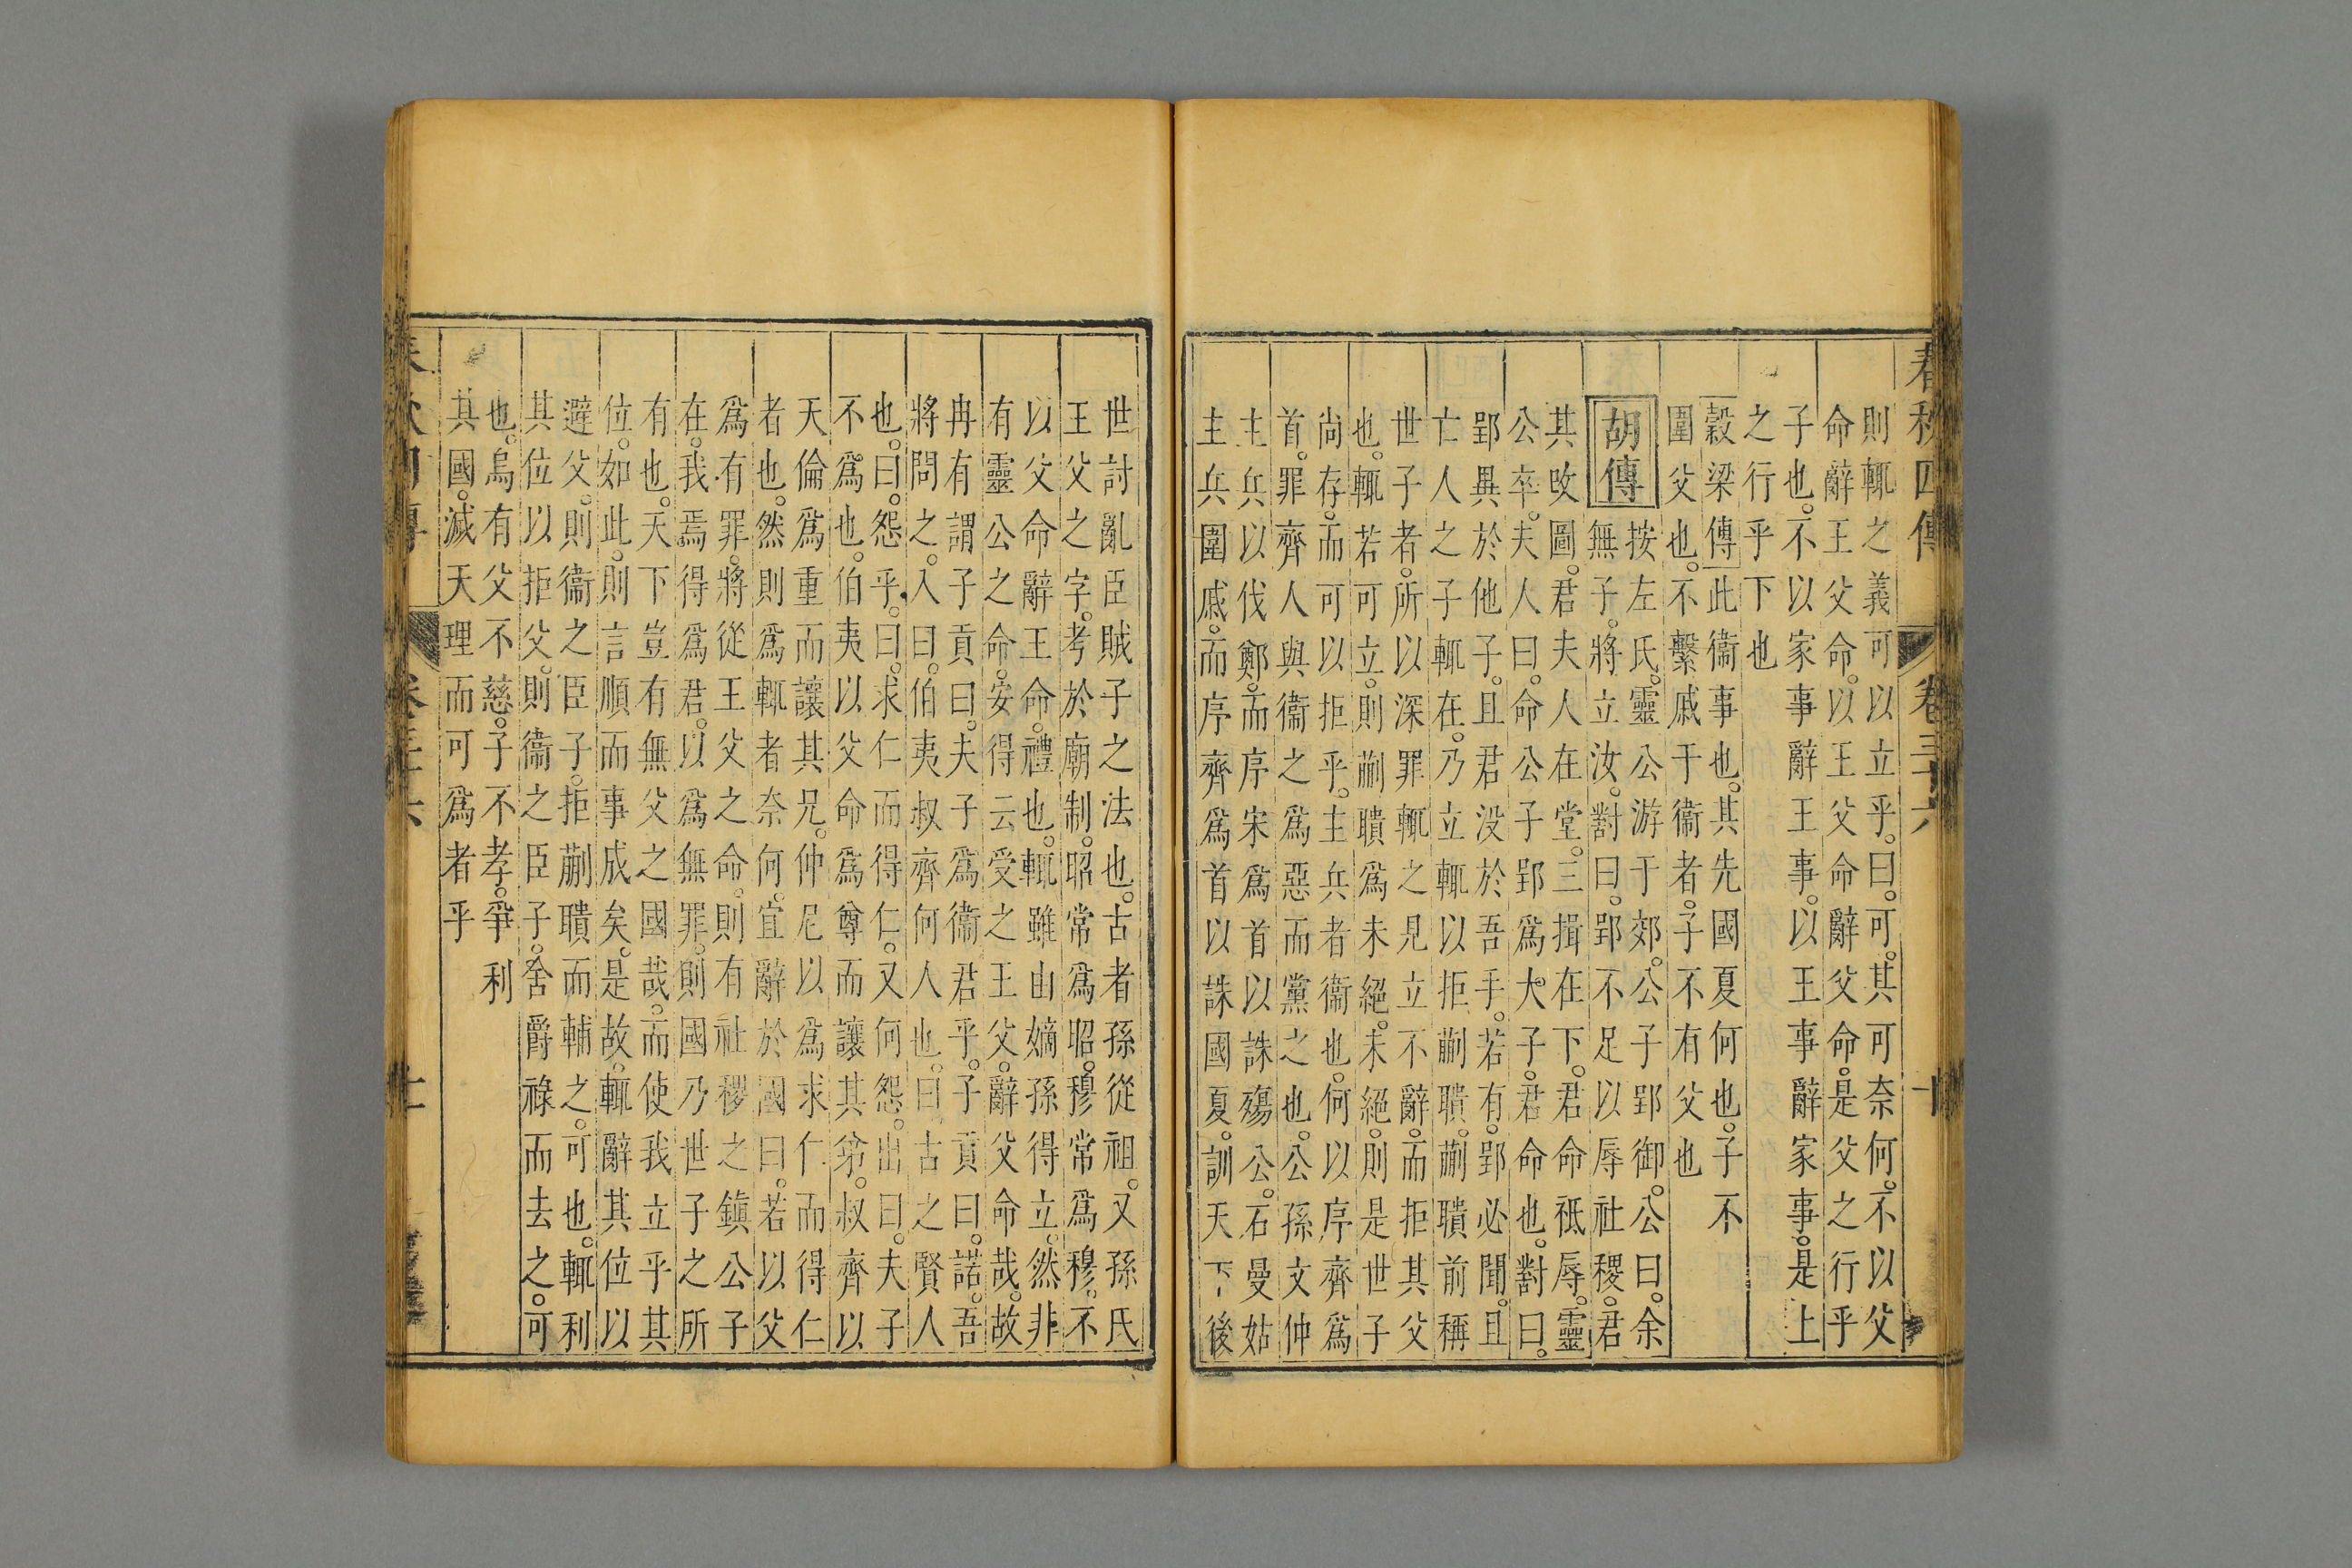 春秋四傳 卷三十六 十
則輒之義可以立乎。曰。可。其可奈何。不以父
命辭王父命。以王父命辭父命。是父之行乎
子也。不以家事辭王事。以王事辭家事。是上
之行乎下也
穀梁傳 此衞事也。其先國夏何也。子不
圍父也。不繫戚于衞者。子不有父也
胡傳 按左氏。靈公游于郊。公子郢御。公曰。余
無子。將立汝。對曰。郢不足以辱社稷。君
其攺圖。君夫人在堂。三揖在下。君命祗辱。靈
公卒。夫人曰。命公子郢爲大子。君命也。對曰。
郢異於他子。且君没於吾手。若有。郢必聞。且
亡人之子輒在。乃立輒以拒蒯聵。蒯聵前稱
世子者。所以深罪輒之見立不辭。而拒其父
也。輒若可立。則蒯聵爲未絕。未絕。則是世子
尚存。而可以拒乎。主兵者衞也。何以序齊爲
首。罪齊人與衞之爲惡而黨之也。公孫文仲
主兵以伐鄭。而序宋爲首以誅殤公。石曼姑
主兵圍戚。而序齊爲首以誅國夏。訓天下後
世討亂臣賊子之法也。古者孫從祖。又孫氏
王父之字。考於廟制。昭常爲昭。穆常爲穆。不
以父命辭王命。禮也。輒雖由嫡孫得立。然非
有靈公之命。安得云受之王父。辭父命哉。故
冉有謂子貢曰。夫子爲衞君乎。子貢曰。諾。吾
將問之。入曰。伯夷叔齊何人也。曰古之賢人
也。曰。怨乎。曰。求仁而得仁。又何怨。出曰。夫子
不爲也。伯夷以父命爲尊而讓其弟。叔齊以
天倫爲重而讓其兄。仲尼以爲求仁而得仁
者也。然則爲輒者奈何。宜辭於國曰。若以父
爲有罪。將從王父之命。則有社稷之鎮公子
在。我焉得爲君。以爲無罪。則國乃世子之所
有也。天下豈有無父之國哉。而使我立乎其
位。如此。則言順而事成矣。是故。輒辭其位以
避父。則衞之臣子。拒蒯聵而輔之。可也。輒利
其位以拒父。則衞之臣子。舍爵祿而去之。可
也。烏有父不慈。子不孝。爭利
其國。滅天理而可爲者乎